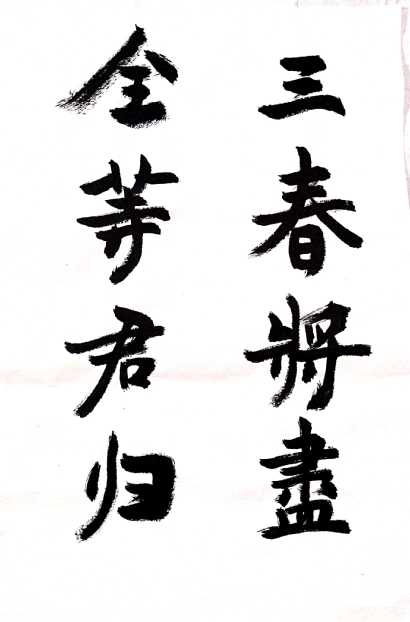 三春將盡
全等君归